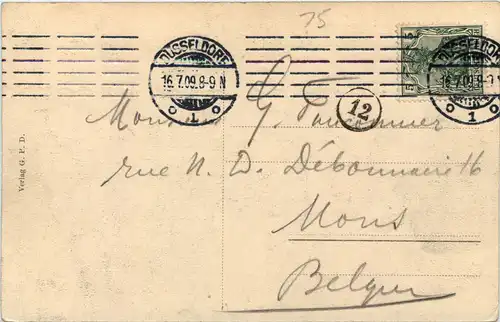 75
DÜSSELDORF
16.7.09.8-9 N
1
DÜSSELDORF
16.7.09.8-9 N
1
5
5
12
Verlag G. P. D.
G.
rue N. D. Débonnaire 16
Mons